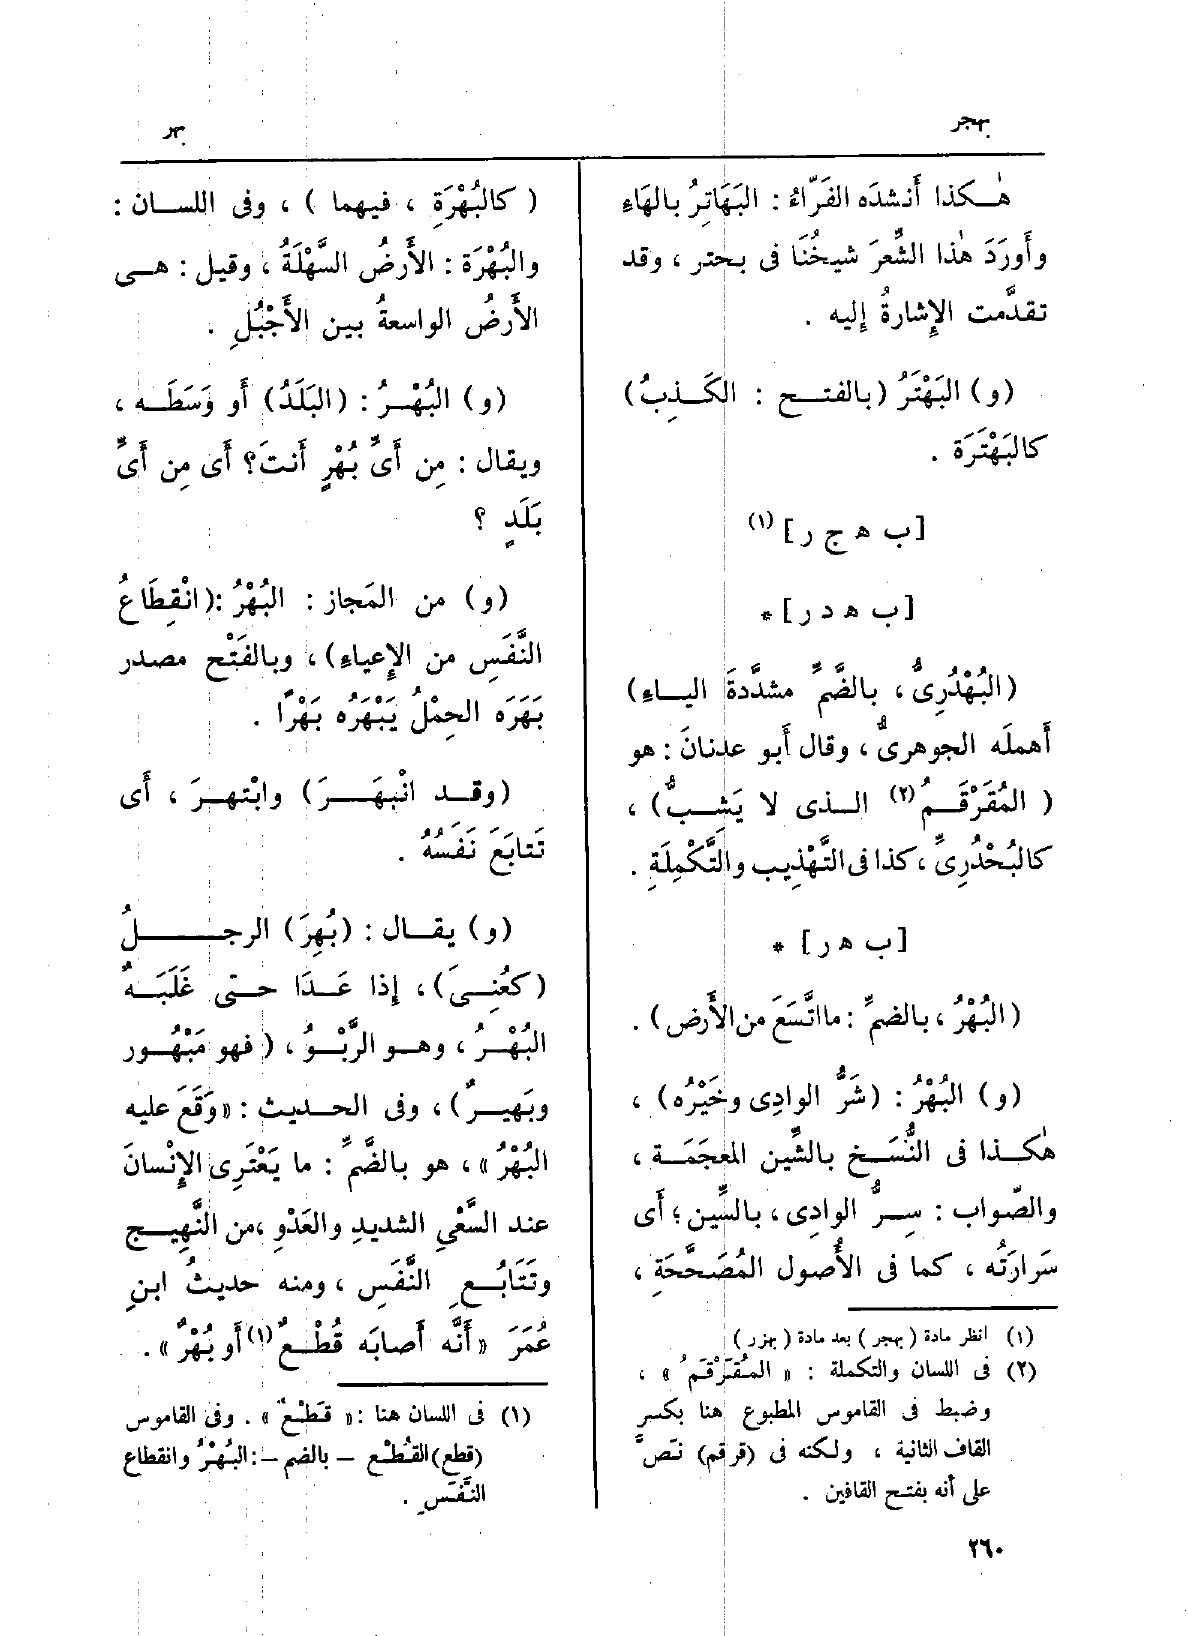 بهجر
بهر
هٰكذا أَنشده الفَرّاءُ : البَهَاتِرُ بالهَاءِ
وأَورَدَ هٰذا الشِّعرَ شيخُنَا فى بحتر ، وقد
تقدَّمت الإِشارةُ إِليه .
(و) البَهْتَرُ (بالفتح : الكَذِبُ)
كالبَهْتَرَة .
[ب ه ج ر] (١)
[ب ه د ر] *
(البُهْدُرِىُّ ، بالضَّمِّ مشدَّدةَ الياءِ)
أَهمله الجوهرىُّ ، وقال أَبو عدنانَ : هو
( المُقَرْقَمُ (٢) الذى لا يَشِبُّ) ،
كالبُحْدُرِىِّ ، كذا فى التَّهْذِيب والتَّكْمِلَةِ .
[ب ه ر] *
(البُهْرُ ، بالضمِّ : ما اتَّسَعَ من الأَرض) .
(و) البُهْرُ : (شَرُّ الوادِى وخَيْرُه) ،
هٰكذا فى النُّسَخ بالشِّين المعجَمَة ،
والصّواب : سِرُّ الوادِى ، بالسِّين ؛ أَى
سَرارَتُه ، كما فى الأُصول المُصَحَّحَةِ ،
(١) انظر مادة ( بهجر ) بعد مادة ( بهزر )
(٢) فى اللسان والتكملة : « المُقَرْقَمُ » ،
وضبط فى القاموس المطبوع هنا بكسر
القاف الثانية ، ولكنه فى (قرقم) نَصَّ
على أنه بفتح القافين .
( كالبُهْرَةِ ، فيهما ) ، وفى اللسان :
والبُهْرَة : الأَرضُ السَّهْلَةُ ، وقيل : هى
الأَرضُ الواسعةُ بين الأَجْبُلِ .
(و) البُهْرُ : (البَلَدُ) أَو وَسَطَه ،
ويقال : مِن أَىِّ بُهْرٍ أَنتَ؟ أَى مِن أَىِّ
بَلَدٍ ؟
(و) من المَجاز : البُهْرُ :(انْقِطَاعُ
النَّفَسِ من الإِعياءِ) ، وبالفَتْح مصدر
بَهَرَه الحِمْلُ يَبْهَرُه بَهْرًا .
(وقد انْبهَرَ) وابْتهرَ ، أَى
تَتابَعَ نَفَسُهُ .
(و) يقال : (بُهِرَ) الرجلُ
(كعُنِىَ) ، إِذا عَدَا حتى غَلَبَهُ
البُهْرُ ، وهو الرَّبْوُ ، ( فهو مَبْهُور
وبَهِيرٌ) ، وفى الحديث : «وَقَعَ عليه
البُهْرُ» ، هو بالضَّمِّ : ما يَعْتَرِى الإِنْسانَ
عند السَّعْىِ الشديدِ والعَدْوِ ، من النَّهِيج
وتَتَابُعِ النَّفَسِ ، ومنه حديثُ ابنِ
عُمَرَ «أَنَّه أَصابَه قُطْعٌ (١) أَو بُهْرٌ» .
(١) فى اللسان هنا : « قَطْعٌ » . وفى القاموس
(قطع) القُطْع – بالضم – : البُهْرُ وانقطاع
النَّفَسِ .
٢٦٠